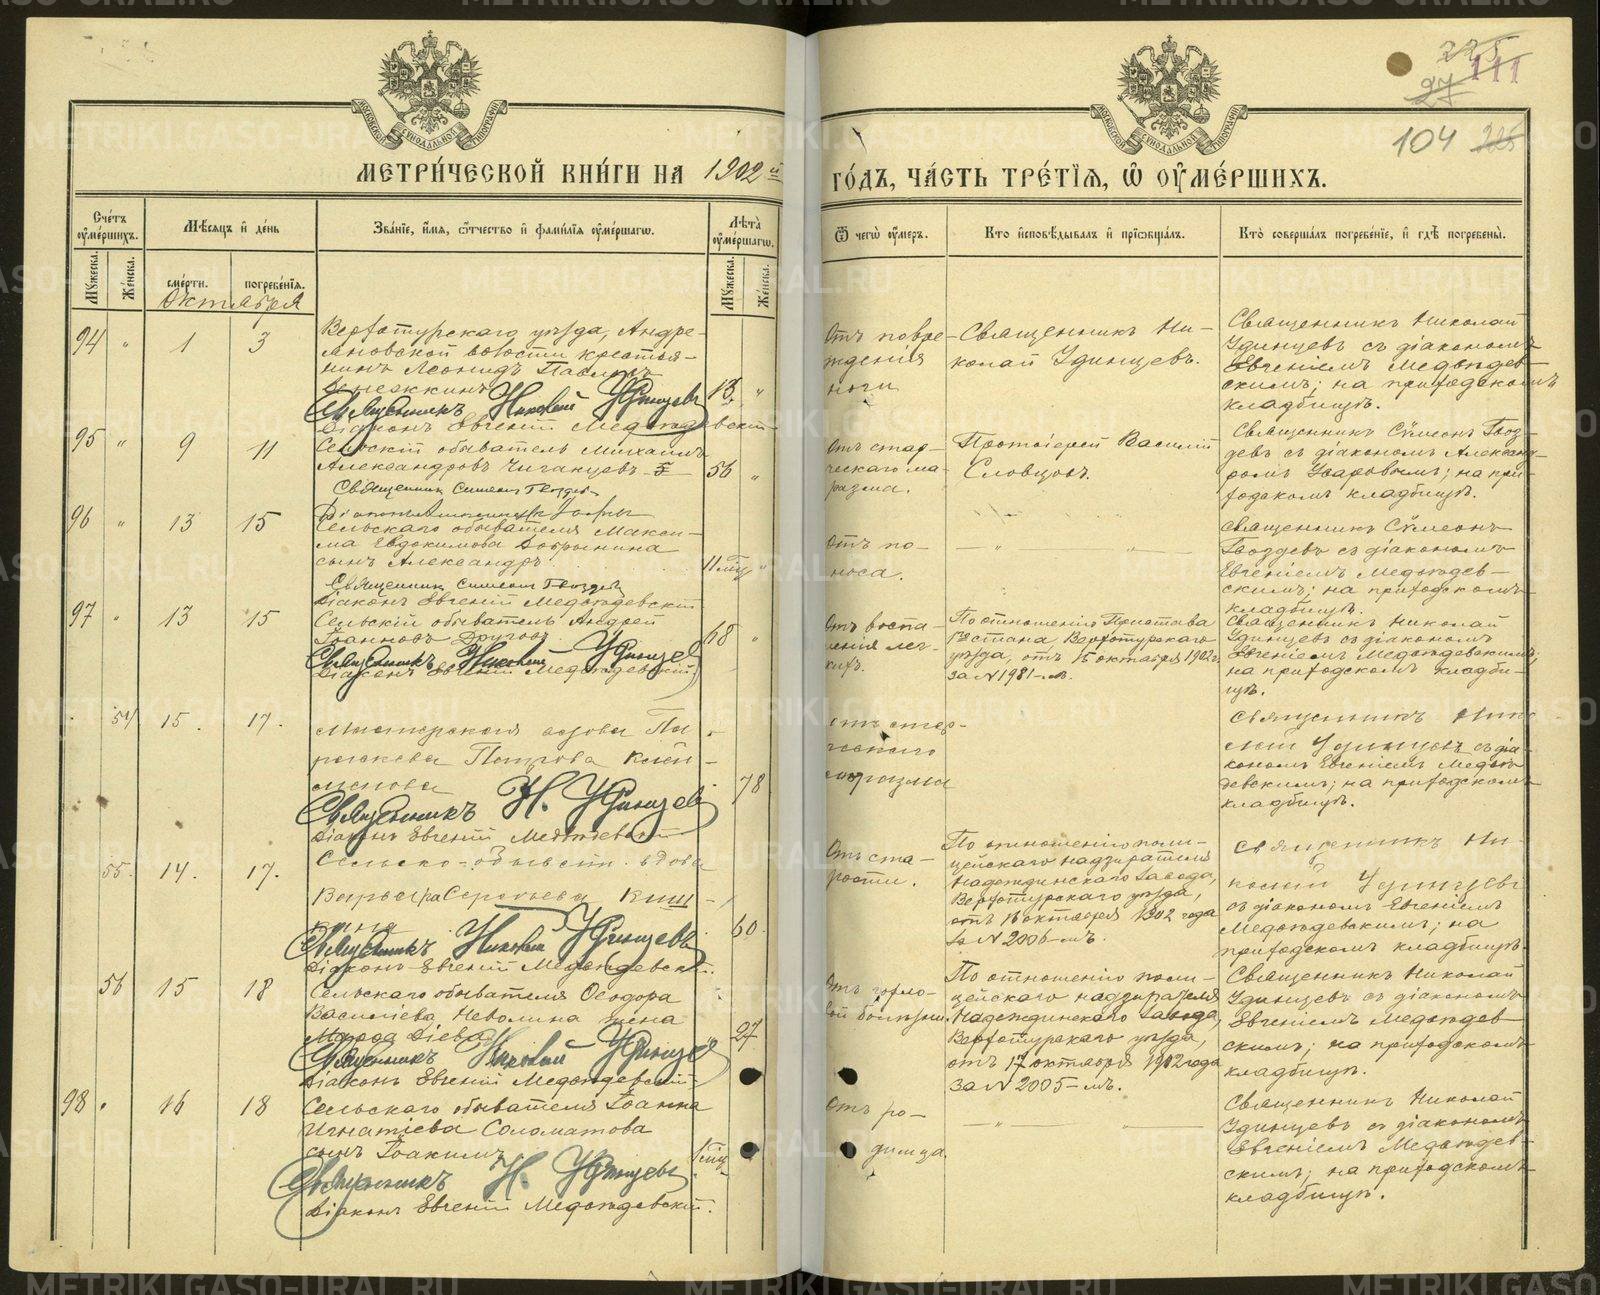 225
27 111
104 225
МЕТРИ́ЧЕСКОЙ КНИ́ГИ НА 1902 й
ГО́ДЪ, ЧА́СТЬ ТРЕ́ТІѦ, Ѡ ОУМЕ́РШИХЪ.
Сче́тъ оуме́ршихъ.
Мѣ́сяцъ и де́нь
Зва́ніе, и́мя, ѻ́тчество и фами́лія оуме́ршагѡ.
Лѣ́та оуме́ршагѡ.
Му́жеска.
Же́нска.
сме́рти.
погребе́нія.
Му́жеска.
Же́нска.
Ѿ чегѡ̀ оу́меръ.
Кто̀ и҆сповѣ́дывалъ и҆ прїѡбща́лъ.
Кто̀ соверша́лъ погребе́ніе, и҆ гдѣ̀ погребены̀.
Октября
94 " 1 3
Верхотурскаго уѣзда, Андре-
яновской волости крестья-
нинъ Леонидъ Павловъ
Священникъ Николай Удинцевъ
Діаконъ Евгеній Медвѣдевскій
13. "
Отъ повре-
жденія
ноги
Священникъ Ни-
колай Удинцевъ.
Священникъ Николай
Удинцевъ съ діакономъ
Евгеніемъ Медвѣдев-
скимъ; на приходскомъ
кладбищѣ.
95 " 9 11
Сельскій обыватель Михаилъ
Александровъ
Священникъ Симеонъ Гвоздевъ
56 "
Отъ стар-
ческаго ма-
разма.
Протоіерей Василій
Словцовъ.
Священникъ Сѵмеонъ Гвоз-
девъ съ діакономъ Александ-
ромъ Уваровымъ; на при-
ходскомъ кладбищѣ.
96 " 13 15
Сельскаго обывателя Макси-
ма Евдокимова Добрынина
сынъ Александръ
Священникъ Симеонъ Гвоздевъ
Діаконъ Евгеній Медвѣдевскій
11 мѣц "
Отъ по-
носа.
— " — " —
Священникъ Сѵмеонъ
Гвоздевъ съ діакономъ
Евгеніемъ Медвѣдев-
скимъ; на приходскомъ
кладбищѣ.
97 " 13 15
Сельскій обыватель Андрей
Іоанновъ Друговъ
Священникъ Николай Удинцевъ
Діаконъ Евгеній Медвѣдевскій.
68 "
Отъ воспа-
ленія лег-
кихъ.
По отношенію Пристава
стана Верхотурскаго
уѣзда, отъ 15 октября 1902 г.
за № 1981-мъ.
Священникъ Николай
Удинцевъ съ діакономъ
Евгеніемъ Медвѣдевскимъ;
на приходскомъ кладби-
щѣ.
54 15. 17.
Мастерская вдова Па-
Петрова
Священникъ Н. Удинцевъ
Діаконъ Евгеній Медвѣдевскій
78
Отъ стар-
ческаго
маразма
Священникъ Нико-
лай Удинцевъ съ діа-
кономъ Евгеніемъ Медвѣ-
девскимъ; на приходскомъ
кладбищѣ.
55. 14. 17.
Сельско-обыват. вдова
Варвара Сергѣева
Священникъ Николай Удинцевъ
Діаконъ Евгеній Медвѣдевскій.
60.
Отъ ста-
рости.
По отношенію поли-
цейскаго надзирателя
Надеждинскаго завода,
Верхотурскаго уѣзда,
отъ 16 октября 1902 года
за № 2006-мъ.
Священникъ Ни-
колай Удинцевъ
съ діакономъ Евгеніемъ
Медвѣдевскимъ; на
приходскомъ кладбищѣ.
56 15 18
Сельскаго обывателя Ѳеодора
Василіева Неволина жена
Діева
Священникъ Николай Удинцевъ
Діаконъ Евгеній Медвѣдевскій
27
Отъ горло-
вой болѣзни.
По отношенію поли-
цейскаго надзирателя
Надеждинскаго завода,
Верхотурскаго уѣзда,
отъ 17 октября 1902 года
за № 2005-мъ.
Священникъ Николай
Удинцевъ съ діакономъ
Евгеніемъ Медвѣдев-
скимъ; на приходскомъ
кладбищѣ.
98 " 16 18
Сельскаго обывателя Іоанна
Игнатіева Соломатова
сынъ Іоакимъ
Священникъ Н. Удинцевъ
Діаконъ Евгеній Медвѣдевскій.
1 мѣц
Отъ ро-
димца.
— " — " —
Священникъ Николай
Удинцевъ съ діакономъ
Евгеніемъ Медвѣдев-
скимъ; на приходскомъ
кладбищѣ.
METRIKI.GASO-URAL.RU